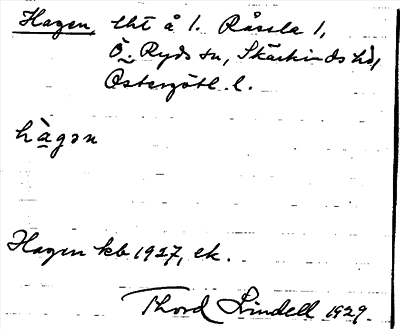 Hagen, lht å 1. Råssla 1,
Ö. Ryds sn, Skärkinds hd,
Östergötl. l.
hàgən
Hagen kb 1927, ek.
Thord Lindell 1929.